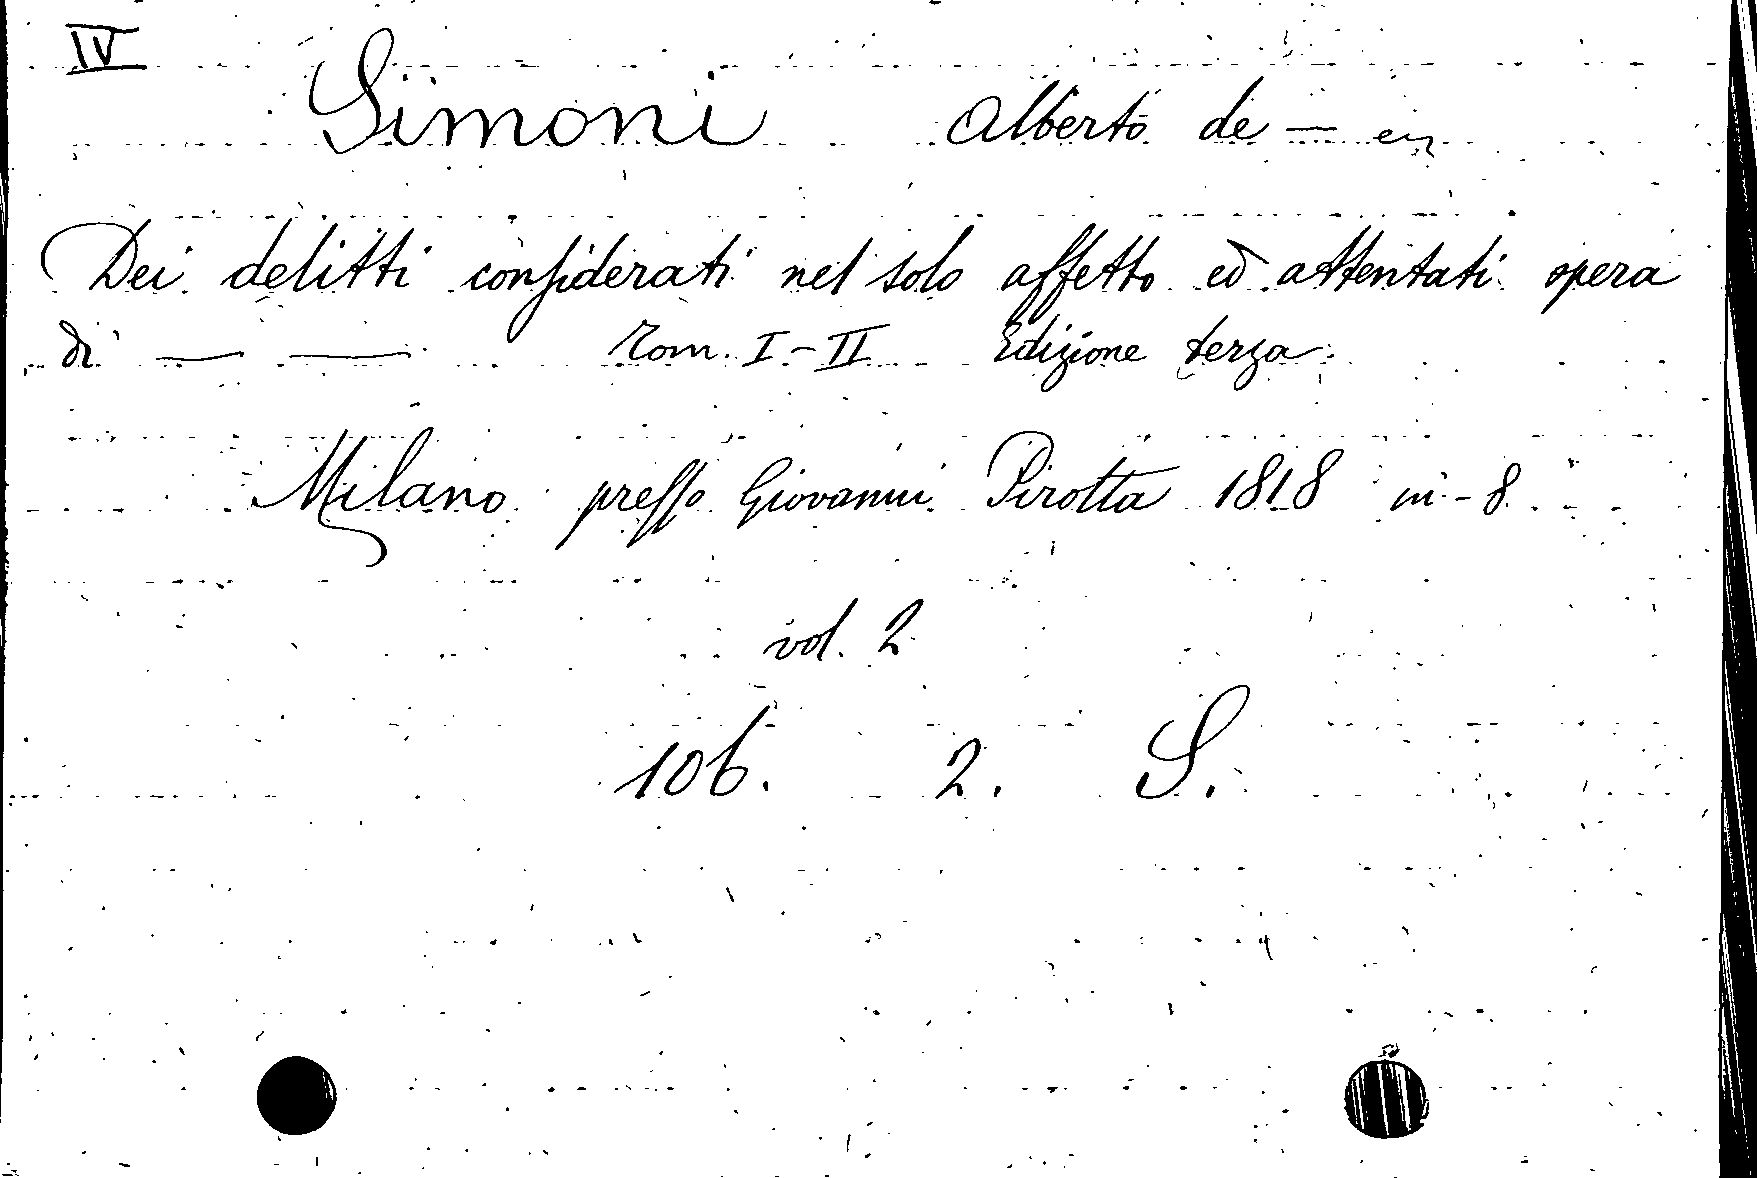 IV
Simoni Alberto de —
Dei delitti considerati nel solo affetto ed attentati opera
di — — Tom. I-II Edizione terza
Milano presso Giovanni Pirotta 1818 in-8
vol. 2
106. 2. S.